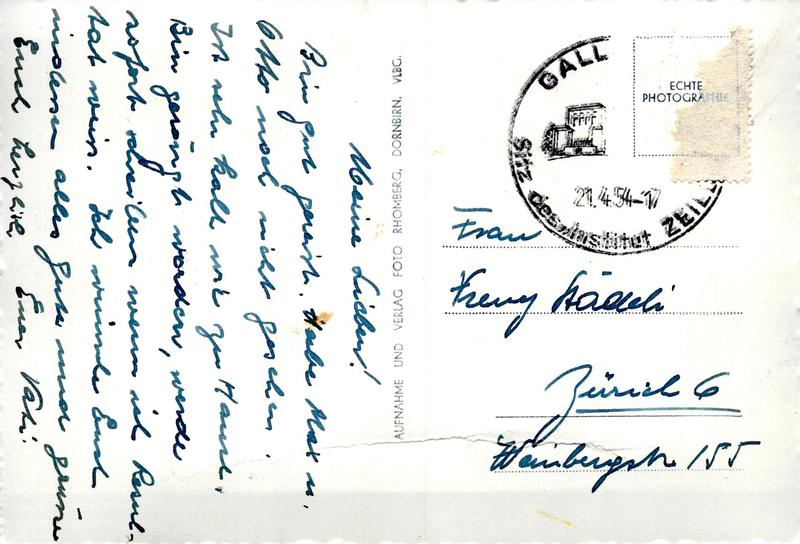 Meine Lieben!
Bin gut gereist. Habe Max u.
Otto noch nicht gesehen.
Ist sehr kalt wie zu Hause.
Bin geröngt worden, werde
sofort schreiben wenn ich Resul-
tat weis. Ich wünsche Euch
indessen alles gute und grüsse
Euch herzlich Euer Vati.
AUFNAHME UND VERLAG FOTO RHOMBERG, DORNBIRN, VLBG.
GALL
Sitz des Institut ZEILE
21.4.54-17
ECHTE
PHOTOGRAPHIE
Frau
Städeli
Zürich 6
Weinbergstr 155